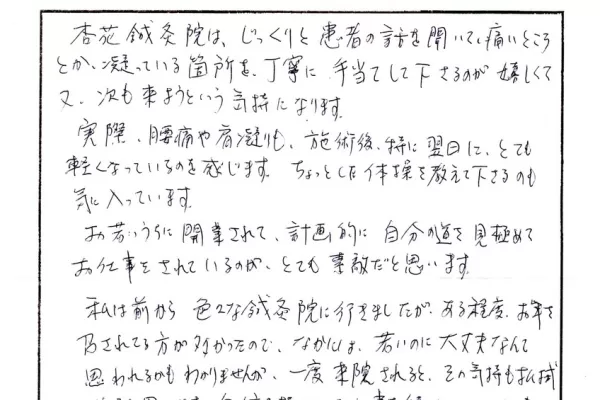 杏花鍼灸院は、じっくりと患者の話を聞いて、痛いところ
とか、凝っている箇所を、丁寧に手当てして下さるのが嬉しくて
又、次も来ようという気持になります。
実際、腰痛や肩凝りも、施術後、特に翌日に、とても
軽くなっているのを感じます。ちょっとした体操を教えて下さるのも
気に入っています。
お若いうちに開業されて、計画的に自分の道を見極めて
お仕事をされているのが、とても素敵だと思います。
私は前から色々な鍼灸院に行きましたが、ある程度、お年を
召されてる方が多かったので、なかには、若いのに大丈夫なんて
思われるかもわかりませんが、一度来院されると、その気持も払拭